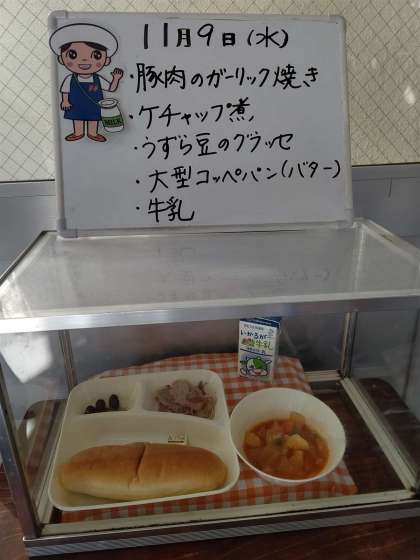 11月9日(水)
・豚肉のガーリック焼き
・ケチャップ煮
・うずら豆のグラッセ
・大型コッペパン(バター)
・牛乳
MILK
いかるが
牛乳